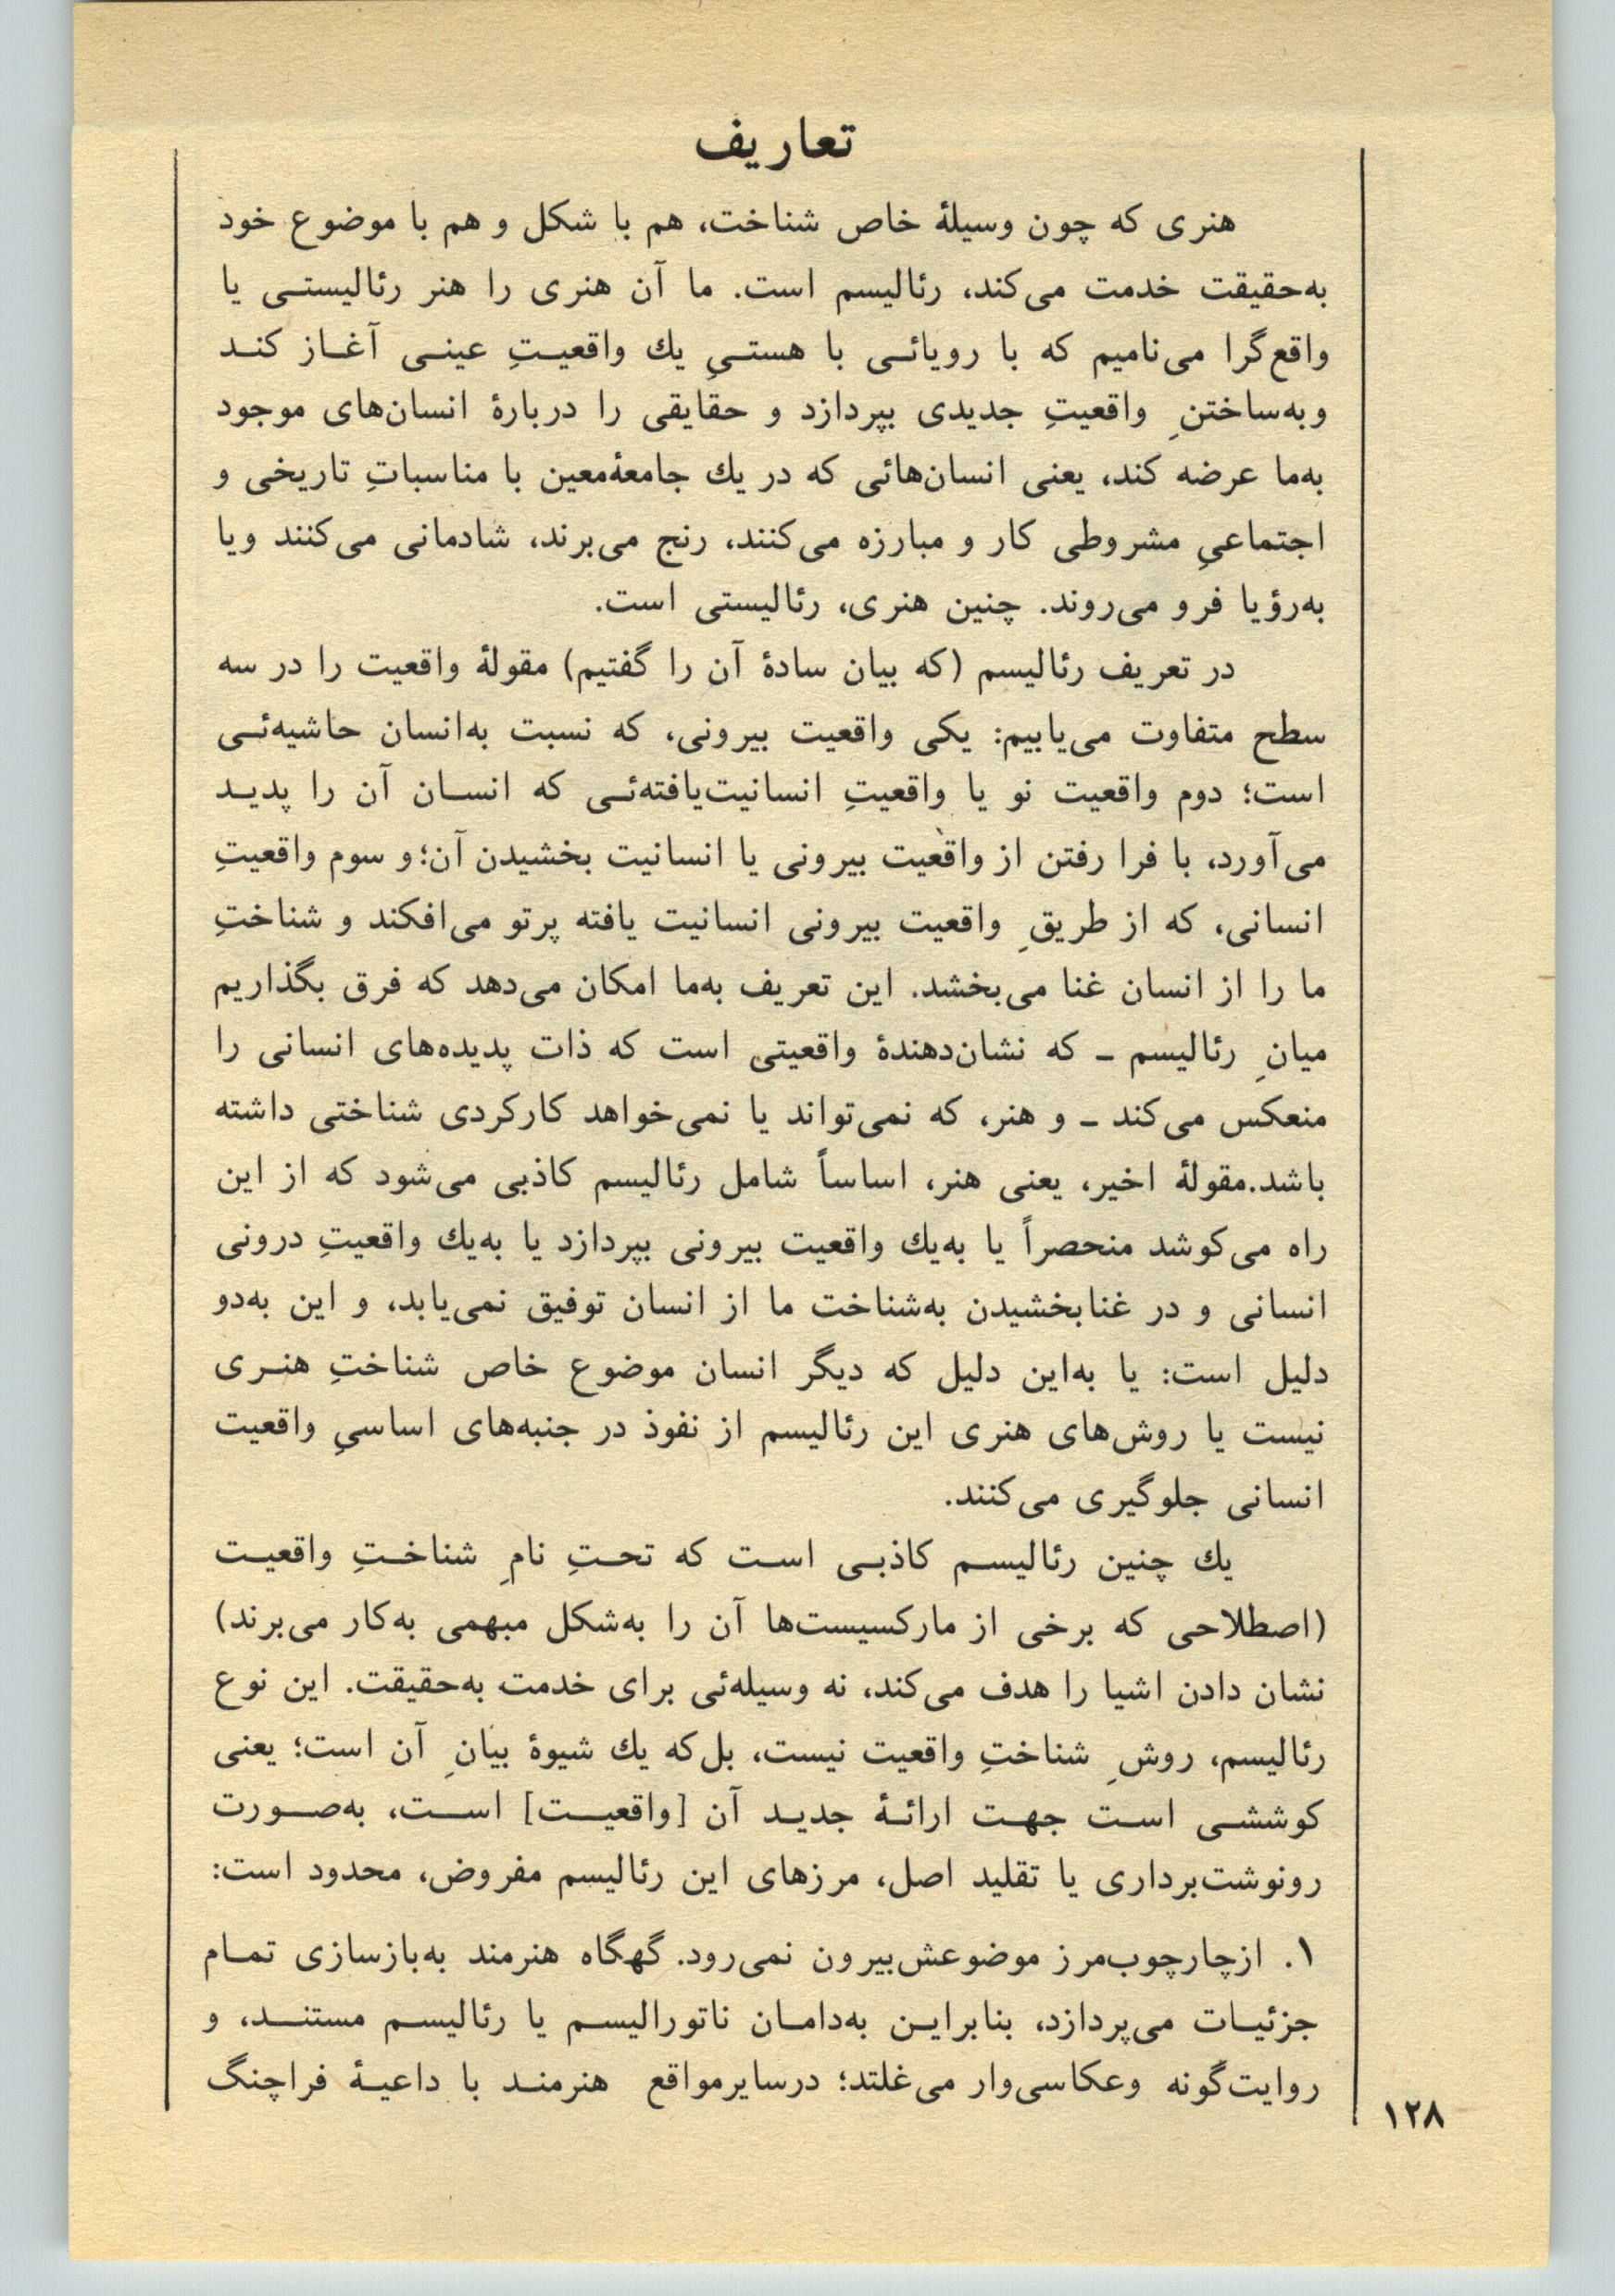 تعاریف
هنری که چون وسیلهٔ خاص شناخت، هم با شکل و هم با موضوع خود
به‌حقیقت خدمت می‌کند، رئالیسم است. ما آن هنری را هنر رئالیستـی یا
واقع‌گرا می‌نامیم که با رویائـی با هستـیِ یك واقعیـتِ عینـی آغـاز کنـد
وبه‌ساختنِ واقعیتِ جدیدی بپردازد و حقایقی را دربارهٔ انسان‌های موجود
به‌ما عرضه کند، یعنی انسان‌هائی که در یك جامعهٔ‌معین با مناسباتِ تاریخی و
اجتماعیِ مشروطی کار و مبارزه می‌کنند، رنج می‌برند، شادمانی می‌کنند ویا
به‌رؤیا فرو می‌روند. چنین هنری، رئالیستی است.
در تعریف رئالیسم (که بیان سادهٔ آن را گفتیم) مقولهٔ واقعیت را در سه
سطح متفاوت می‌یابیم: یکی واقعیت بیرونی، که نسبت به‌انسان حاشیه‌ئـی
است؛ دوم واقعیت نو یا واقعیتِ انسانیت‌یافته‌ئـی که انسـان آن را پدیـد
می‌آورد، با فرا رفتن از واقعیت بیرونی یا انسانیت بخشیدن آن؛ و سوم واقعیتِ
انسانی، که از طریقِ واقعیت بیرونی انسانیت یافته پرتو می‌افکند و شناختِ
ما را از انسان غنا می‌بخشد. این تعریف به‌ما امکان می‌دهد که فرق بگذاریم
میانِ رئالیسم ـ که نشان‌دهندهٔ واقعیتی است که ذات پدیده‌های انسانی را
منعکس می‌کند ـ و هنر، که نمی‌تواند یا نمی‌خواهد کارکردی شناختی داشته
باشد.مقولهٔ اخیر، یعنی هنر، اساساً شامل رئالیسم کاذبی می‌شود که از این
راه می‌کوشد منحصراً یا به‌یك واقعیت بیرونی بپردازد یا به‌یك واقعیتِ درونی
انسانی و در غنابخشیدن به‌شناخت ما از انسان توفیق نمی‌یابد، و این به‌دو
دلیل است: یا به‌این دلیل که دیگر انسان موضوع خاص شناختِ هنـری
نیست یا روش‌های هنری این رئالیسم از نفوذ در جنبه‌های اساسیِ واقعیت
انسانی جلوگیری می‌کنند.
یك چنین رئالیسـم کاذبـی اسـت که تحـتِ نامِ شناخـتِ واقعیـت
(اصطلاحی که برخی از مارکسیست‌ها آن را به‌شکل مبهمی به‌کار می‌برند)
نشان دادن اشیا را هدف می‌کند، نه وسیله‌ئی برای خدمت به‌حقیقت. این نوع
رئالیسم، روشِ شناختِ واقعیت نیست، بل‌که یك شیوهٔ بیانِ آن است؛ یعنی
کوششـی اسـت جهـت ارائـهٔ جدیـد آن [واقعیـت] اسـت، به‌صـورت
رونوشت‌برداری یا تقلید اصل، مرزهای این رئالیسم مفروض، محدود است:
۱. ازچارچوب‌مرز موضوعش‌بیرون نمی‌رود. گهگاه هنرمند به‌بازسازی تمـام
جزئیـات می‌پردازد، بنابرایـن به‌دامـان ناتورالیسـم یا رئالیسـم مستنـد، و
روایت‌گونه وعکاسی‌وار می‌غلتد؛ درسایرمواقع هنرمنـد با داعیـهٔ فراچنگ
۱۲۸